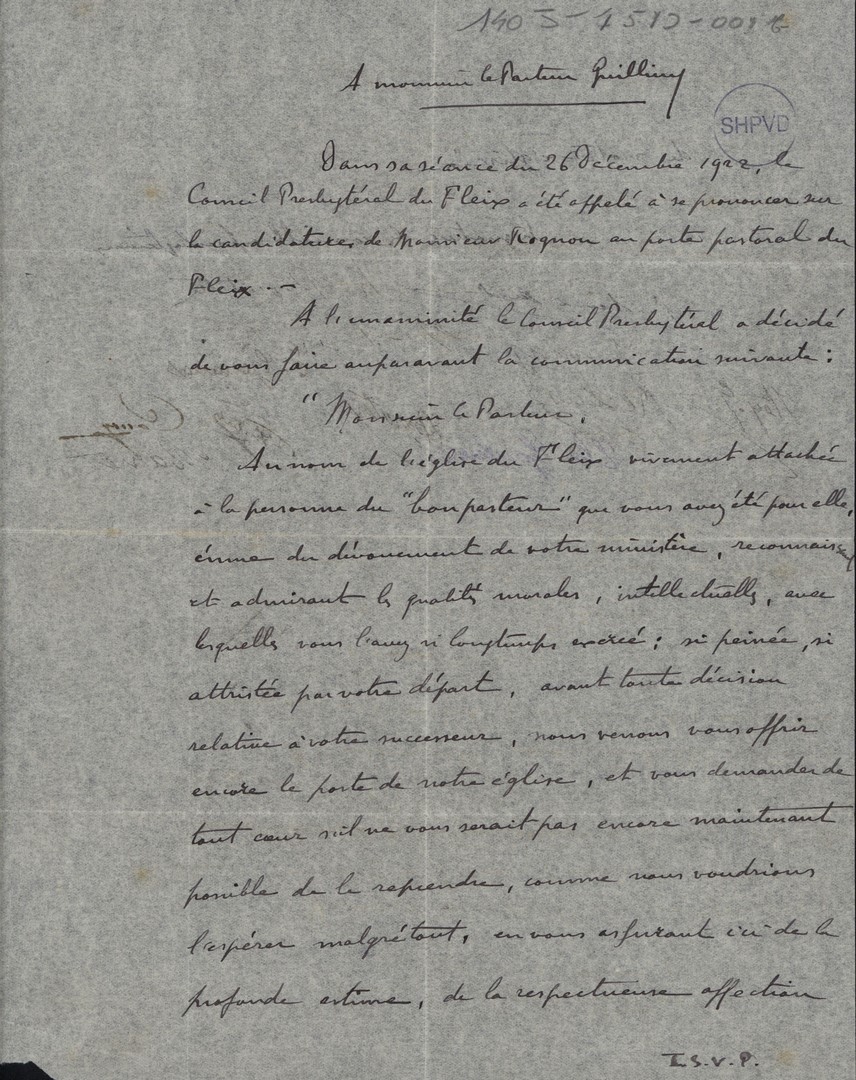 A monsieur le Pasteur
SHPVD
Dans sa séance du 26 Décembre 1922, le
Conseil Presbytéral du Fleix a été appelé à se prononcer sur
la candidature de Monsieur Rognon au poste pastoral du
Fleix. -
A l'unaminité le Conseil Presbytéral a décidé
de vous faire auparavant la communication suivante :
" Monsieur le Pasteur,
Au nom de l'église du Fleix vivement attachée
à la personne du "bon pasteur" que vous avez été pour elle,
émue du dévouement de votre ministère, reconnaissant
et admirant les qualités morales, intellectuelles, avec
lesquelles vous l'avez si longtemps exercé ; si peinée, si
attristée par votre départ, avant toute décision
relative à votre successeur, nous venons vous offrir
encore le poste de notre église, et vous demander de
tout cœur s'il ne vous serait pas encore maintenant
possible de le reprendre, comme nous voudrions
l'espérer malgré tout, en vous assurant ici de la
profonde estime, de la respectueuse affection
T.S.V.P.